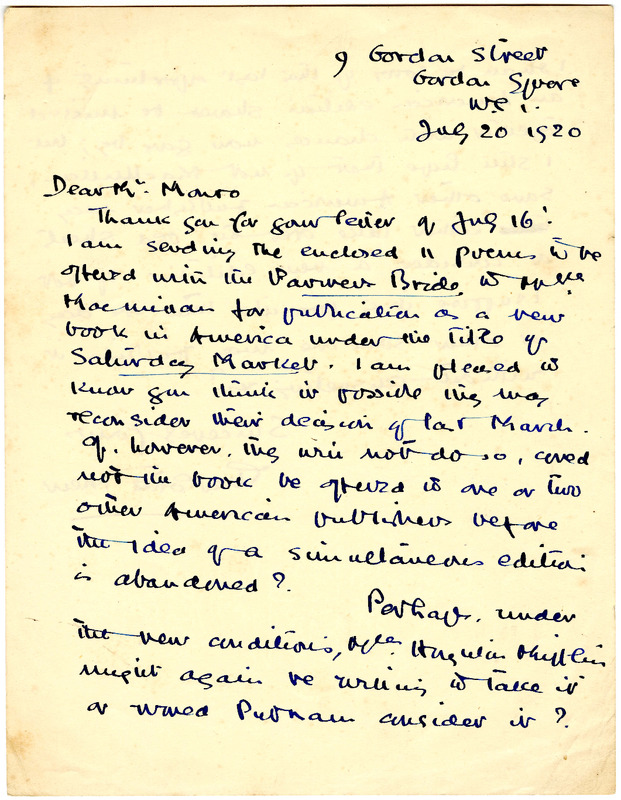 9 Gordon Street
Gordon Square
W.C.1.
July 20 1920
Dear Mr. Monro
Thank you for your letter of July 16.
I am sending the enclosed 11 poems to be
offered with the Farmer's Bride to Messrs
Macmillan for publication as a new
book in America under the title of
Saturday Market. I am pleased to
know you think it possible they may
reconsider their decision of last March.
If, however, they will not do so, could
not the book be offered to one or two
other American publishers before
the idea of a simultaneous edition
is abandoned?
Perhaps, under
the new conditions, Messrs. Houghton Mifflin
might again be willing to take it
or would Putnam consider it?